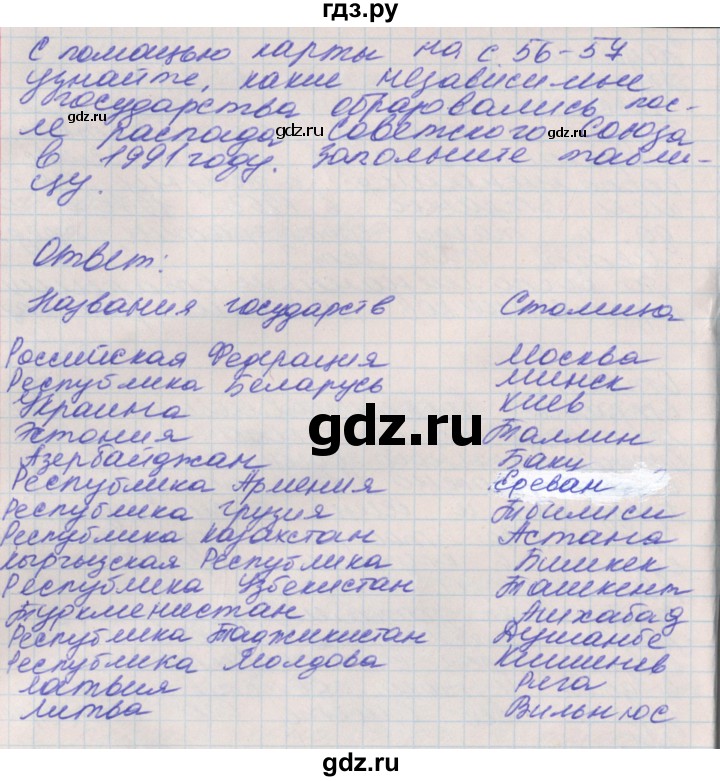 гдз.ру
С помощью карты на с 56-57
узнайте, какие независимые
государства образовались пос-
ле распада Советского Союза
в 1991 году. Заполните табли-
цу.
Ответ:
Названия государств Столица
Российская Федерация Москва
Республика Беларусь Минск
Украина Киев
gdz.ru
Эстония Таллин
Азербайджан Баку
Республика Армения Ереван
Республика Грузия Тбилиси
Республика Казахстан Астана
Кыргызская Республика Бишкек
Республика Узбекистан Ташкент
Туркменистан Ашхабад
Республика Таджикистан Душанбе
Республика Молдова Кишинев
Латвия Рига
Литва Вильнюс
gdz.ru